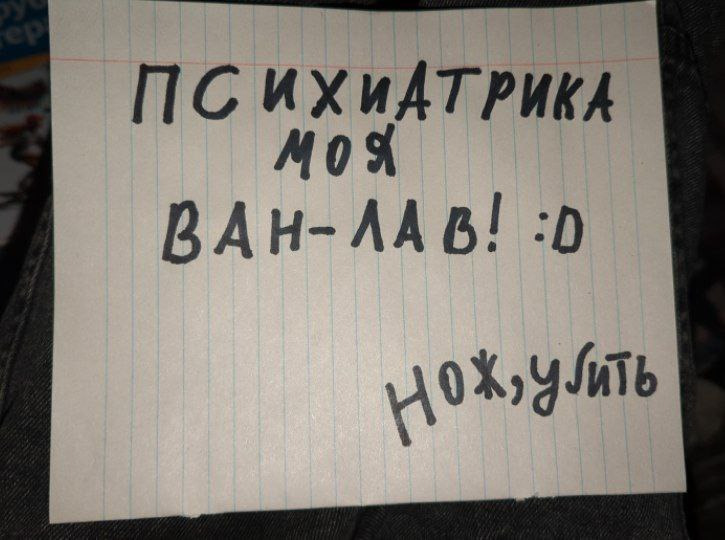 ПСИХИАТРИКА
МОЯ
ВАН-ЛАВ! :D
НОЖ, УБИТЬ